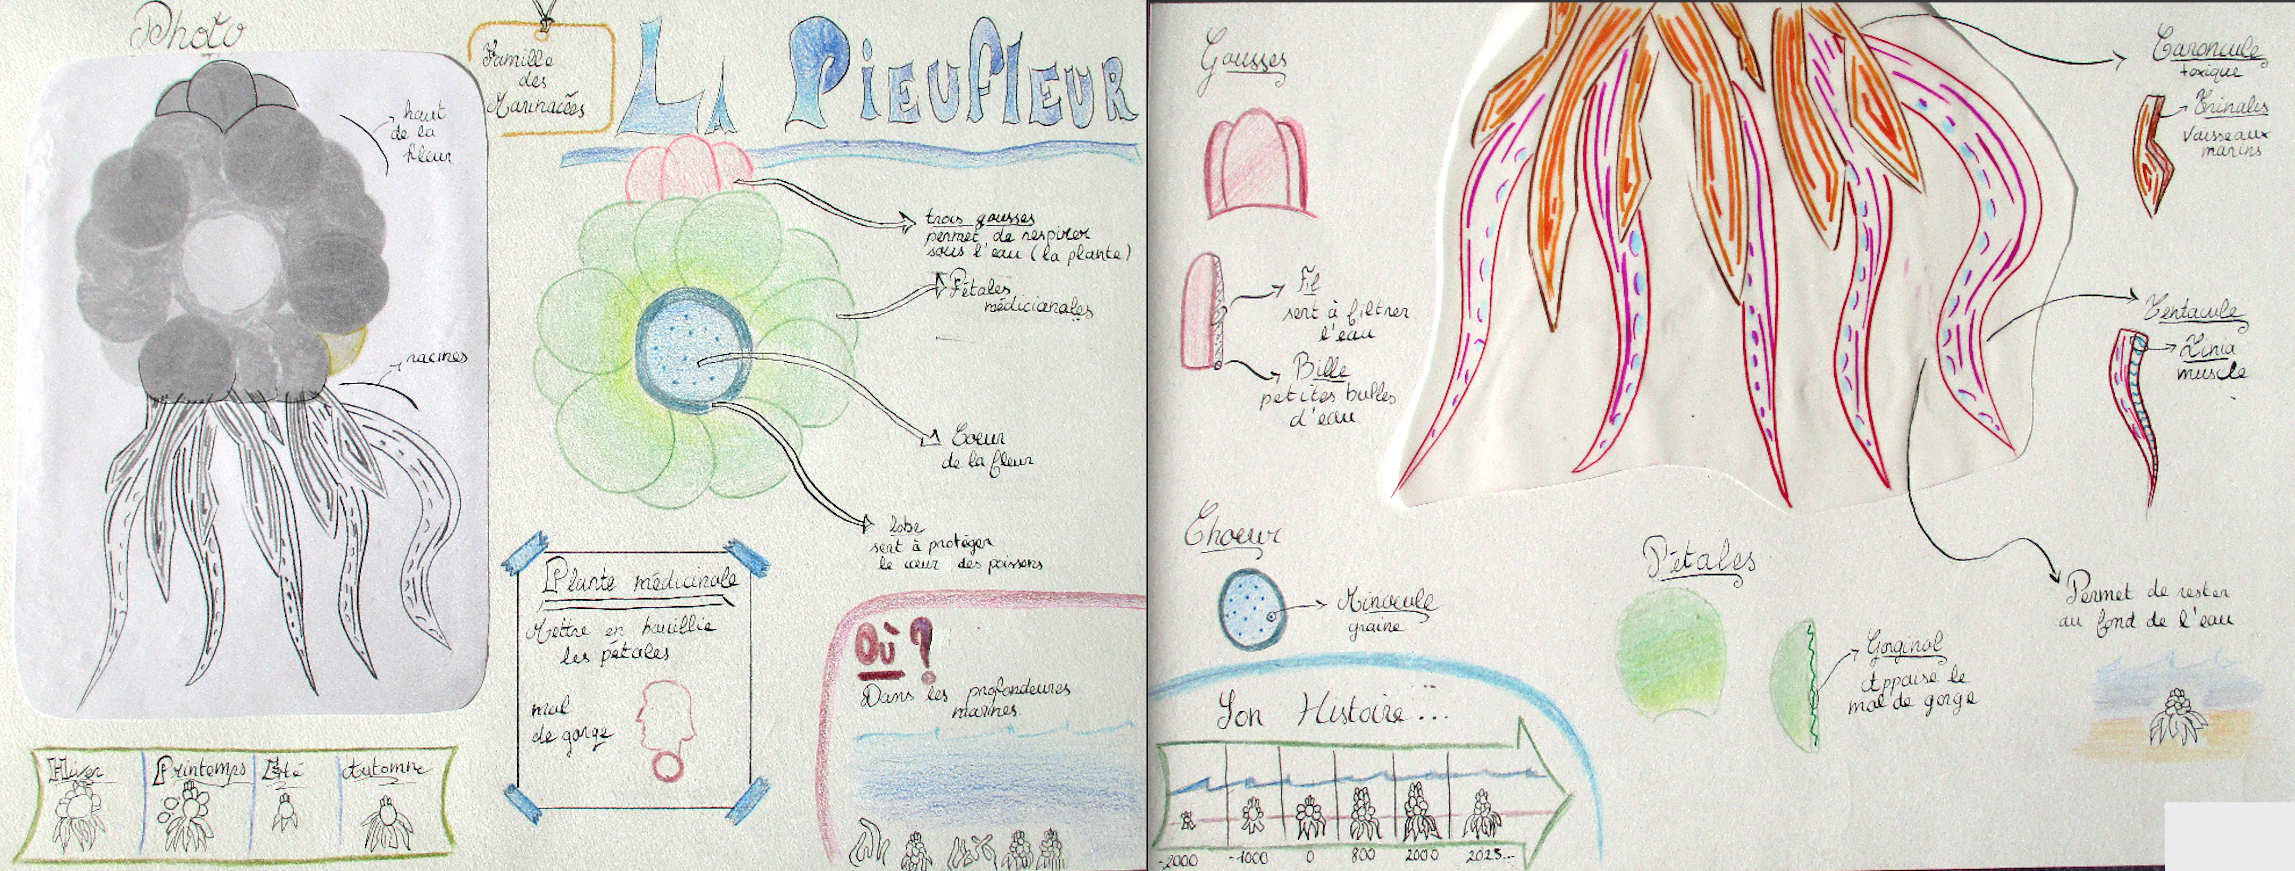 Photo
haut
de la
fleur
racines
Hiver
Printemps
Eté
Automne
Famille
des
Marinacées
La Pieufleur
trois gousses
permet de respirer
sous l'eau (la plante)
Pétales
médicianales
Coeur
de la fleur
lobe
sert à protéger
le cœur des poissons
Plante médicinale
Mettre en bouillie
les pétales
mal
de gorge
Où ?
Dans les profondeures
marines
Gousses
Fil
sert à filtrer
l'eau
Bille
petites bulles
d'eau
Choeur
Minocule
graine
Son Histoire...
-2000
-1000
0
800
2000
2023...
Pétales
Gorginol
Appaise le
mal de gorge
Caroncule
toxique
Crinales
Vaisseaux
marins
Tentacule
Linia
muscle
Permet de rester
au fond de l'eau